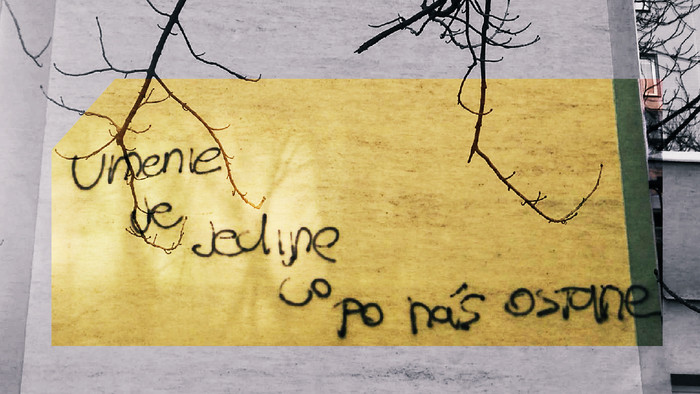 Umenie
je
jediné
co
po nás ostane